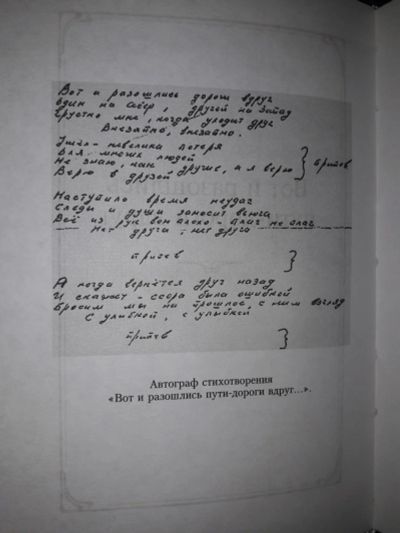 Вот и разошлись дороги вдруг
Один на север, другой на запад
Грустно мне, когда уходит друг
Внезапно, внезапно.
Ушёл - невелика потеря
Для многих людей
Не знаю, как другие, а я верю
Верю в друзей
} Припев
Наступило время неудач
Следы и души заносит вьюга
Всё из рук вон плохо - плач не плач
Нет друга, нет друга
припев }
А когда вернётся друг назад
И скажет - ссора была ошибкой
Бросим мы на прошлое, с ним взгляд
С улыбкой, с улыбкой
припев }
Автограф стихотворения
«Вот и разошлись пути-дороги вдруг...».